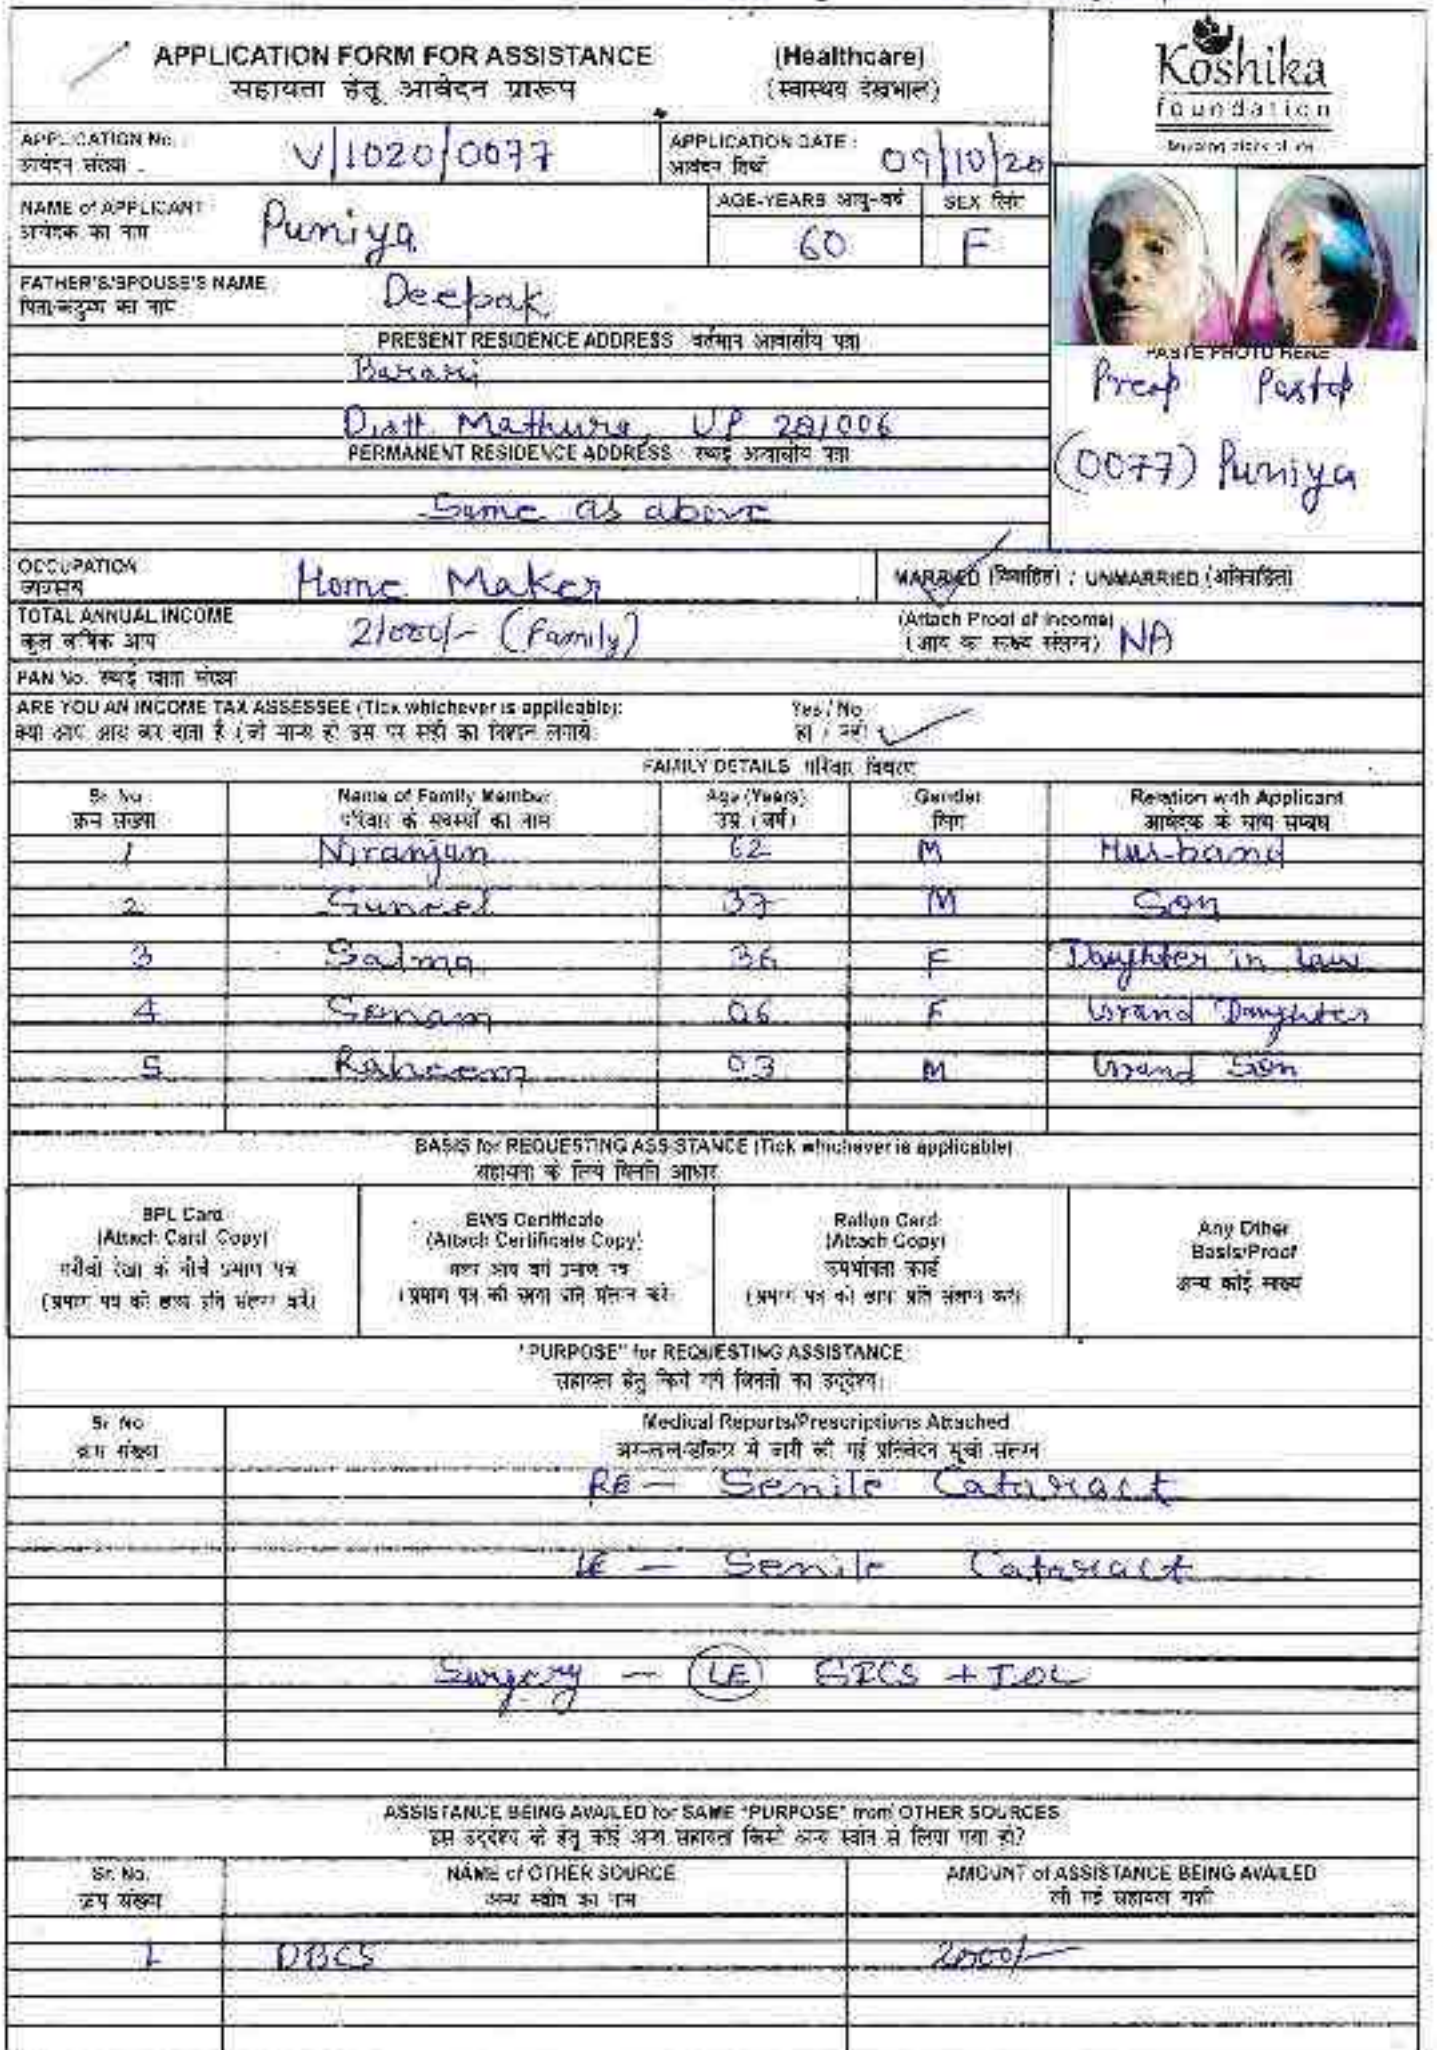 APPLICATION FORM FOR ASSISTANCE (Healthcare)
सहायता हेतू आवेदन प्रारूप (स्वास्थय देखभाल)
Koshika
foundation
APPLICATION No. :
आवेदन संख्या .
V/1020/0077
APPLICATION DATE :
आवेदन तिथी
09/10/20
NAME of APPLICANT
आवेदक का नाम
Puniya
AGE-YEARS आयु-वर्ष
60
SEX लिंग
F
FATHER'S/SPOUSE'S NAME
पिता/कटुम्ब का नाम
Deepak
PRESENT RESIDENCE ADDRESS वर्तमान आवासीय पता
Barari
Distt. Mathura, UP 281006
PERMANENT RESIDENCE ADDRESS स्थाई आवासीय पता
Same as above
PASTE PHOTO HERE
Preop Postop
(0077) Puniya
OCCUPATION
व्यवसाय
Home Maker
MARRIED (विवाहित) / UNMARRIED (अविवाहित)
TOTAL ANNUAL INCOME
कुल वार्षिक आय
21000/- (Family)
(Attach Proof of Income)
(आय का साक्ष्य संलग्न) NA
PAN No. स्थाई खाता संख्या
ARE YOU AN INCOME TAX ASSESSEE (Tick whichever is applicable): Yes / No
क्या आप आय कर दाता है (जो मान्य हो उस पर सही का निशान लगायें हां / नहीं
FAMILY DETAILS परिवार विवरण
Sr. No. Name of Family Member Age (Years) Gender Relation with Applicant
क्रम संख्या परिवार के सदस्यों का नाम उम्र (वर्ष) लिंग आवेदक के साथ सम्बंध
1 Niranjan 62 M Husband
2 Suneel 37 M Son
3 Salma 36 F Daughter in law
4 Sonam 06 F Grand Daughter
5 Raheem 03 M Grand Son
BASIS for REQUESTING ASSISTANCE (Tick whichever is applicable)
सहायता के लिये विनति आधार
BPL Card
(Attach Card Copy)
गरीबी रेखा के नीचे प्रमाण पत्र
(प्रमाण पत्र की छाया प्रति संलग्न करें)
EWS Certificate
(Attach Certificate Copy)
अल्प आय वर्ग प्रमाण पत्र
(प्रमाण पत्र की छाया प्रति संलग्न करें)
Ration Card
(Attach Copy)
उपभोक्ता कार्ड
(प्रमाण पत्र की छाया प्रति संलग्न करें)
Any Other
Basis/Proof
अन्य कोई साक्ष्य
"PURPOSE" for REQUESTING ASSISTANCE
सहायता हेतु किये गये विनती का उद्देश्य
Sr. No. Medical Reports/Prescriptions Attached
क्रम संख्या अस्पताल/डॉक्टर से जारी की गई प्रतिवेदन सूची संलग्न
RE - Senile Cataract
LE - Senile Cataract
Surgery - (LE) SICS + IOL
ASSISTANCE BEING AVAILED for SAME "PURPOSE" from OTHER SOURCES
इस उद्देश्य के हेतु कोई अन्य सहायता किसी अन्य स्त्रोत से लिया गया हो?
Sr. No. NAME of OTHER SOURCE AMOUNT of ASSISTANCE BEING AVAILED
क्रम संख्या अन्य स्त्रोत का नाम ली गई सहायता राशी
1 DBCS 2000/-